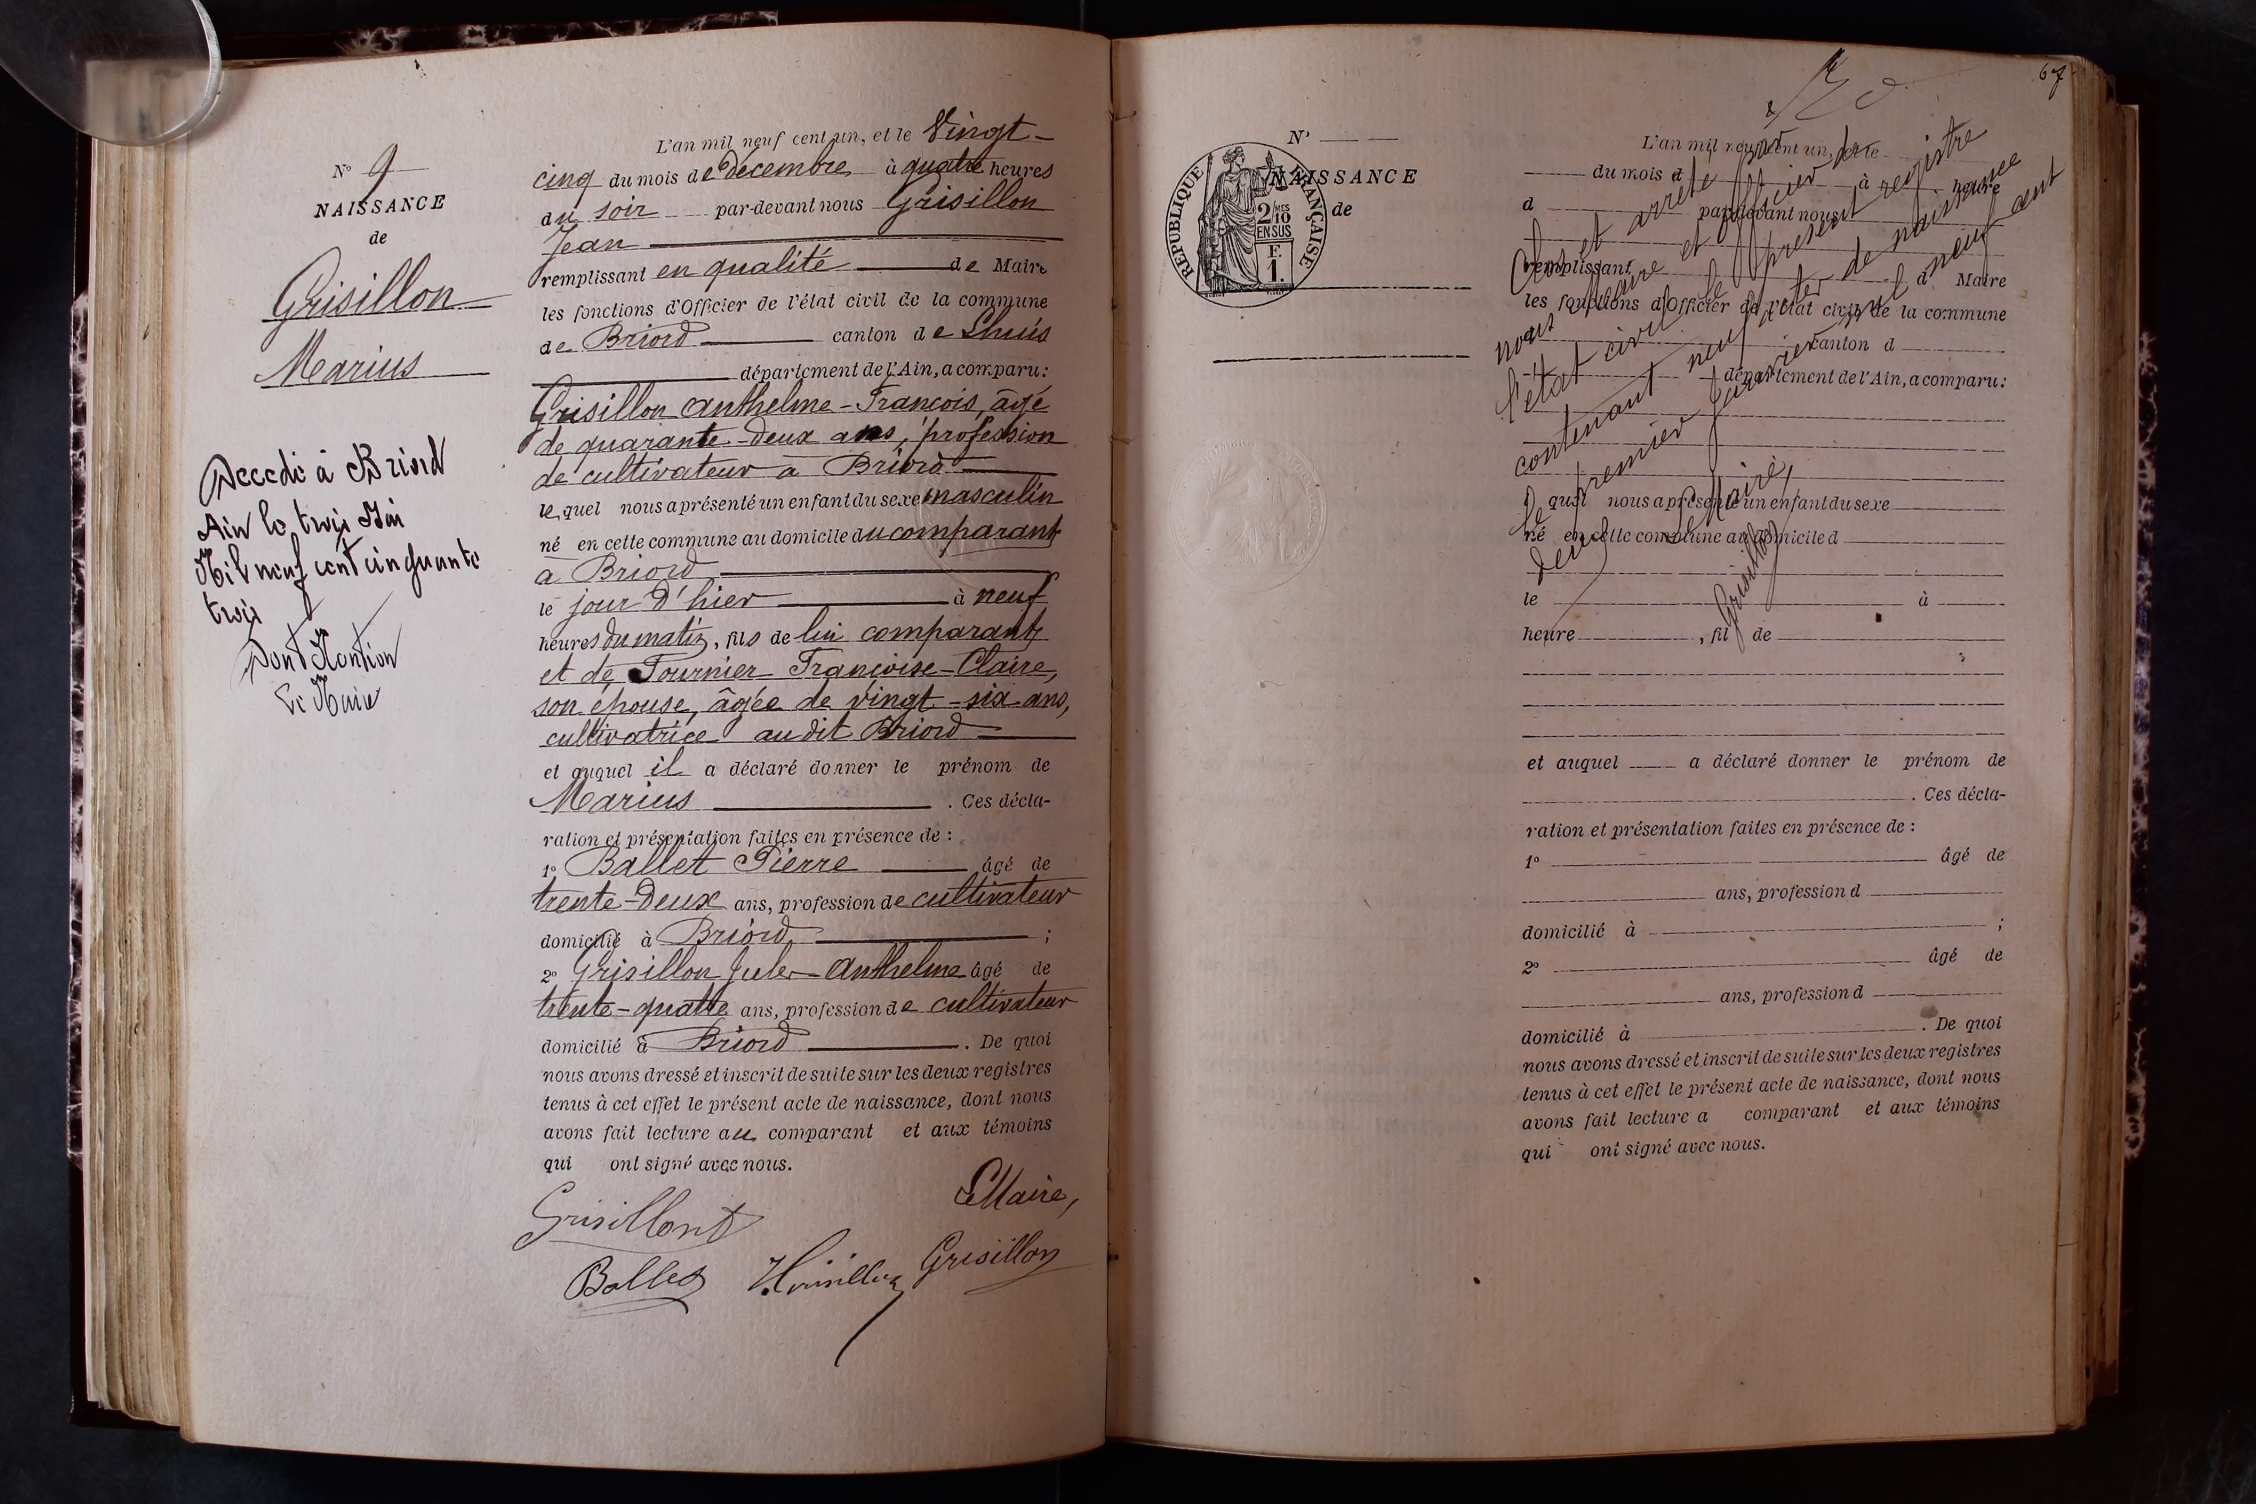 N° 9
NAISSANCE
de
Grisillon
Marius
Decedé à Briord
Ain le trois Mai
Mil neuf cent cinquante
trois
Dont Mention
Le Maire
L'an mil neuf cent un, et le Vingt-
cinq du mois de décembre à quatre heures
du soir par-devant nous Grisillon
Jean
remplissant en qualité de Maire
les fonctions d'Officier de l'état civil de la commune
de Briord canton de Lhuis
département de l'Ain, a comparu:
Grisillon Anthelme-François, âgé
de quarante-deux ans, profession
de cultivateur à Briord
lequel nous a présenté un enfant du sexe masculin
né en cette commune au domicile du comparant
à Briord
le jour d'hier à neuf
heures du matin, fils de lui comparant
et de Fournier Françoise-Claire,
son épouse, âgée de vingt-six ans,
cultivatrice audit Briord
et auquel il a déclaré donner le prénom de
Marius . Ces décla-
ration et présentation faites en présence de :
1° Ballet Pierre âgé de
trente-deux ans, profession de cultivateur
domicilié à Briord ;
2° Grisillon Jules-Anthelme âgé de
trente-quatre ans, profession de cultivateur
domicilié à Briord . De quoi
nous avons dressé et inscrit de suite sur les deux registres
tenus à cet effet le présent acte de naissance, dont nous
avons fait lecture au comparant et aux témoins
qui ont signé avec nous.
Le Maire,
Grisillont
Ballet Grisillon
67
N°
NAISSANCE
de
RÉPUBLIQUE FRANÇAISE
2 MES
10
EN SUS
F.
1.
L'an mil neuf cent un, et le
du mois d à heure
d par-devant nous
remplissant d Maire
les fonctions d'Officier de l'état civil de la commune
canton d
département de l'Ain, a comparu:
l quel nous a présenté un enfant du sexe
né en cette commune au domicile d
le à
heure , fil de
et auquel a déclaré donner le prénom de
. Ces décla-
ration et présentation faites en présence de :
1° âgé de
ans, profession d
domicilié à ;
2° âgé de
ans, profession d
domicilié à . De quoi
nous avons dressé et inscrit de suite sur les deux registres
tenus à cet effet le présent acte de naissance, dont nous
avons fait lecture a comparant et aux témoins
qui ont signé avec nous.
Clos et arrêté par
nous Maire et officier de
l'état civil le présent registre
contenant neuf actes de naissance
le premier Janvier mil neuf cent
deux
Le Maire,
Grisillon